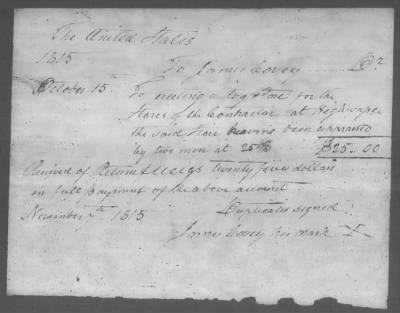 The United States
1815
To James Covey ..... Dr
October 15th To erecting a log Store for the
Stores of the Contractor at Highwassee
the said Store having been appraised
by two men at 25 $ $25.00
Received of Return J Meigs twenty five dollars
in full payment of the above account
November 7th 1815 Duplicates signed
James Covey his mark X